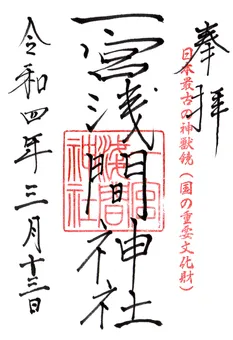 奉拝
日本最古の神獣鏡(国の重要文化財)
一宮浅間神社
一宮
浅間
神社
令和四年三月十三日